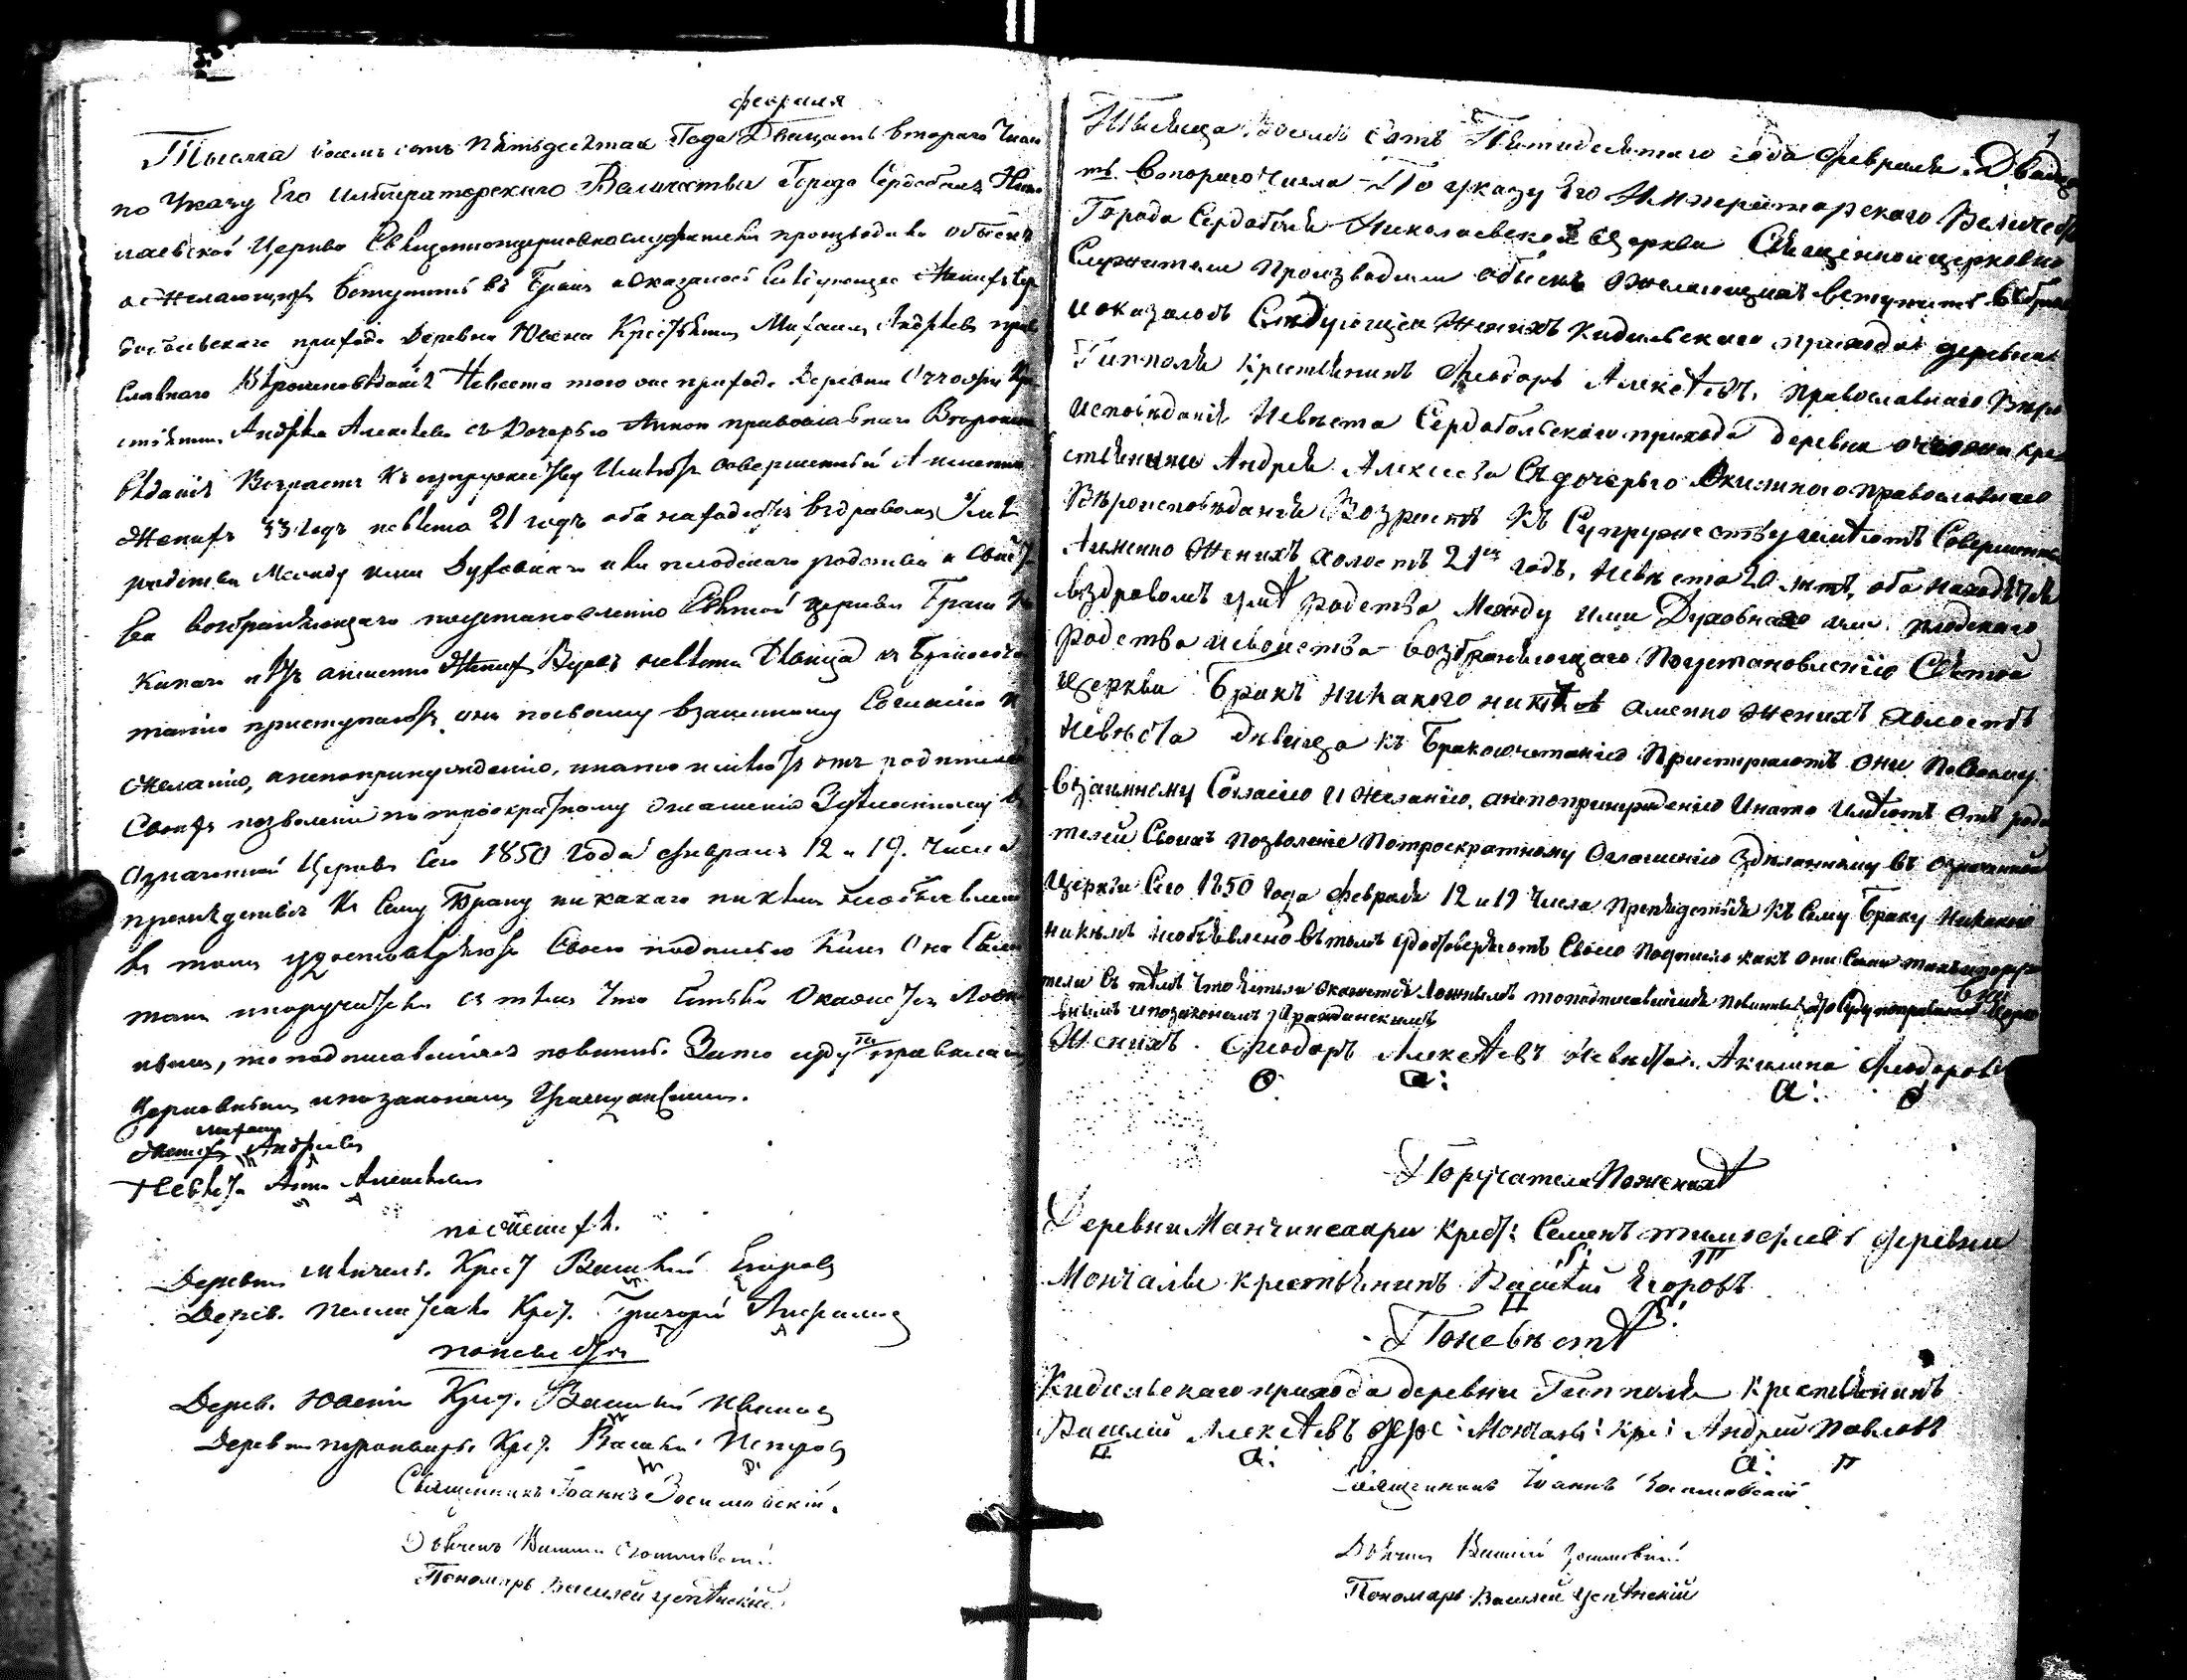 февраля
Тысяча восемь сотъ пятьдесятаго Года Двацать втораго Числ
по Указу Его Императорскаго Величества Города Сердоболя Нико
лаевской Церкви Священноцерковнослужители производили обыскъ
о желающихъ вступить въ Бракъ и оказалось следующее Женихъ Сер
добольскаго прихода Деревни Крестьянинъ Михаилъ Андреевъ прав
славнаго Вероисповеданія Невеста того же прихода Деревни Кре
стьянина Андрея Алексеева съ Дочерью Анною православнаго Вероиспо
веданія Возрастъ Къ супружеству Имеютъ совершенный А именно
Женихъ 33 Годъ невеста 21 годъ оба находятся въ здравомъ Уме
родства Между ими Духовнаго или плодскаго родства и свойст
ва возбраняющаго по установленію Святой церкви Бракъ Ни
какого нетъ а именно Женихъ Вдовъ невеста Девица къ Бракосоче
танію приступаютъ они по своему взаимному Согласію и
Желанію, а не по принужденію, и на то имеютъ отъ родителей
Своихъ позволеніе по троекратному оглашенію Зделанному въ
Означенной Церкви Сего 1850 Года февраля 12 и 19. Числа
препядствія Къ Сему Браку никакого никемъ необъявлено
Въ томъ удостоверяютъ Своею подписью Какъ Они Сами
такъ и поручители съ темъ Что Естьли Окажется Лож
нымъ, то подписавшіеся повинны За то суду по правиламъ
Церковнымъ и по законамъ Гражданскимъ.
Женихъ Михаилъ Андреевъ
Невеста Анна Алексеева
по Женихе.
Деревни Крест Василій Егоровъ
Дерев. Крест. Григорій
по невесте
Дерев. Крест. Василій Ивановъ
Деревни Крест. Василій Петровъ
Священникъ Іоаннъ Зосимовскій.
Дьячекъ Василій
Пономарь Василей Успѣнскій
1
Тысяща Восемь Сотъ Пятидесятаго Года Февраля Двадца
ть Втораго Числа По указу Его Императорскаго Величеств
Города Сердоболя Николаевской Церкви Священноцерковно
Служители Производили обыскъ Ожелающихъ вступить въ бракъ
и оказалось Следующее Женихъ Кидельскаго прихода деревни
Гипполя Крестьянинъ Феодоръ Алексѣевъ, Православнаго Вѣро
исповѣданія Невѣста Сердобольскаго прихода деревни Кре
стьянина Андрея Алексеева Съ дочерью Акилиною православнаго
Вѣроисповѣданія Возрастъ Къ Супружеству имѣютъ Совершенный
А именно Женихъ холостъ 21ᶦᶦ годъ, Невѣста 20 лѣтъ, оба находятся
въ здравомъ умѣ родства Между ими Духовнаго или плодскаго
родства и свойства возбраняющаго По установленію Святой
Церкви Бракъ никакого нѣтъ а именно Женихъ Холостъ
Невѣста Дѣвица къ Бракосочетанію Приступаютъ они По своему
взаимному Согласію и желанію, а не по принужденію И на то Имѣютъ Отъ роди
телей Своихъ позволеніе По троекратному Оглашенію Зделанному въ означенной
Церкви Сего 1850 Года февраля 12 и 19 Числа Препядствія Къ Сему Браку Никакого
никѣмъ необъявлено въ томъ удостоверяютъ Своею Подписью какъ они Сами такъ и поручи
тели Съ тѣмъ Что Естьли окажется Ложнымъ то подписавшіеся повинны за то Суду по правиламъ Церко
внымъ и по законамъ Гражданскимъ
Женихъ Феодоръ Алексѣевъ Невѣста Акилина Феодорова
Ѳ А: А: Ѳ
Поручатели По женихѣ
Деревни Манчинсаари Крест: Семенъ Тимофеевъ деревни
Мончалы крестьянинъ Василій Егоровъ
По невѣстѣ
Кидельскаго прихода деревни Гипполя Крестьянинъ
Василій Алексѣевъ дере: Мончалы: Кре: Андрей Павловъ
А: А: П
Священникъ Іоаннъ Зосимовскій
Дьячекъ Василій
Пономарь Василей Успѣнскій